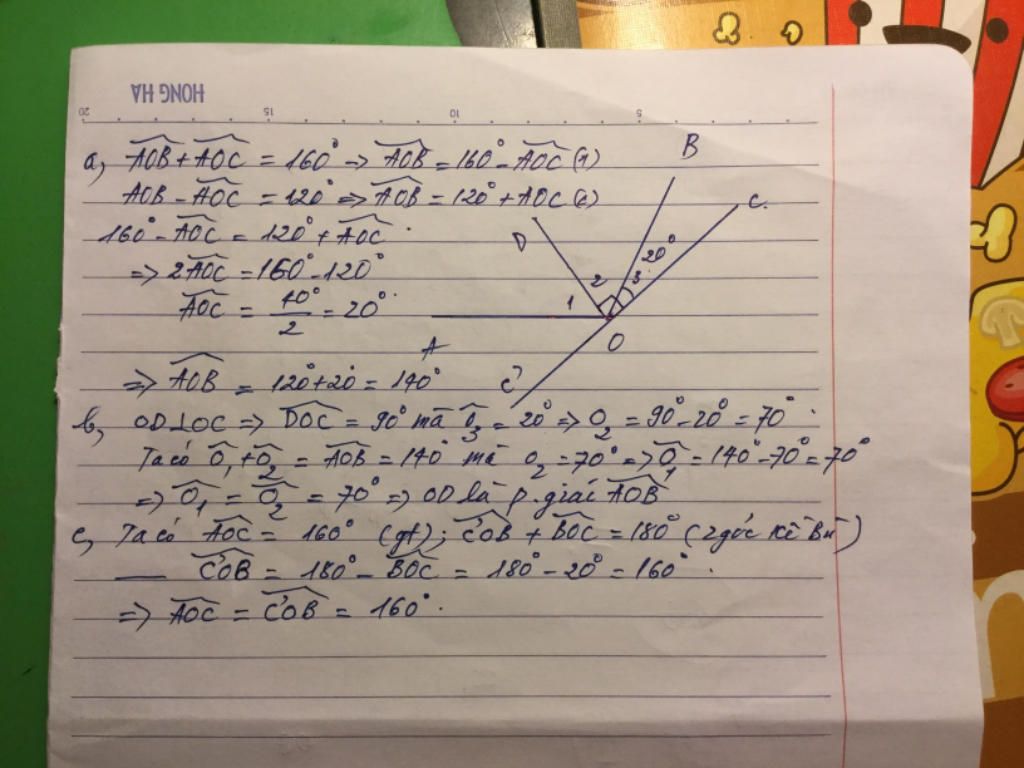 HONG HA
20 15 10 5
a, AOB + AOC = 160° → AOB = 160° - AOC (1)
AOB - AOC = 120° => AOB = 120° + AOC (2)
160° - AOC = 120° + AOC
=> 2AOC = 160° - 120°
AOC = 40°/2 = 20°
=> AOB = 120° + 20 = 140°
B
C
D
20°
1 2 3
A
O
C'
b, OD⊥OC => DOC = 90° mà O3 = 20° => O2 = 90° - 20° = 70°
Ta có O1 + O2 = AOB = 140° mà O2 = 70° => O1 = 140° - 70° = 70°
=> O1 = O2 = 70° => OD là p.giác AOB
c, Ta có AOC = 160° (gt); C'OB + BOC = 180° (2 góc kề Bù)
C'OB = 180° - BOC = 180° - 20° = 160°
=> AOC = C'OB = 160°